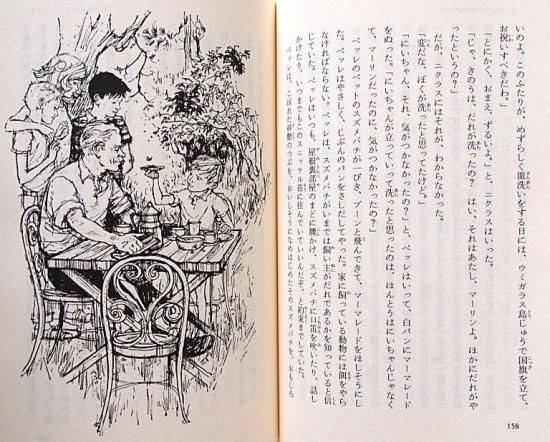 いのよ。このふたりが、めずらしく皿洗いをする日には、ウミガラス島じゅうで国旗を立て、
お祝いすべきだわ。」
「とにかく、おまえ、ずるいよ。」と、ニクラスはいった。
「じゃ、きのうは、だれが洗ったの？ はい、それはあたし、マーリンよ。ほかにだれがや
ったというの？」
だが、ニクラスにはそれが、わからなかった。
「変だな。ぼくが洗ったと思ってたけど。」
「にいちゃん、それ、気がつかなかったの？」と、ペッレはいって、白パンにマーマレード
をぬった。「にいちゃんが立っていって洗ったと思ったのは、ほんとうはにいちゃんじゃなく
て、マーリンだったのに、気がつかなかったの？」
ペッレのペットのスズメバチが一ぴき、ブーンと飛んできて、マーマレードをほしそうにし
た。ペッレはやさしく、じぶんのパンをさしだしてやった。家に飼っている動物には餌をやら
なければならない。ペッレは、スズメバチがいまでは飼い主がだれであるかを知っていると信
じていた。ペッレはいつも、屋根裏部屋のまどに腰かけ、スズメバチに口笛を吹いたり、話し
かけたり、いつまでもこのスニッケル荘に住んでいていいんだぞ、と約束までしていた。
ペッレは、こぼれた砂糖のつぶを、おいしそうになめはじめたそのスズメバチを、おもしろ
158